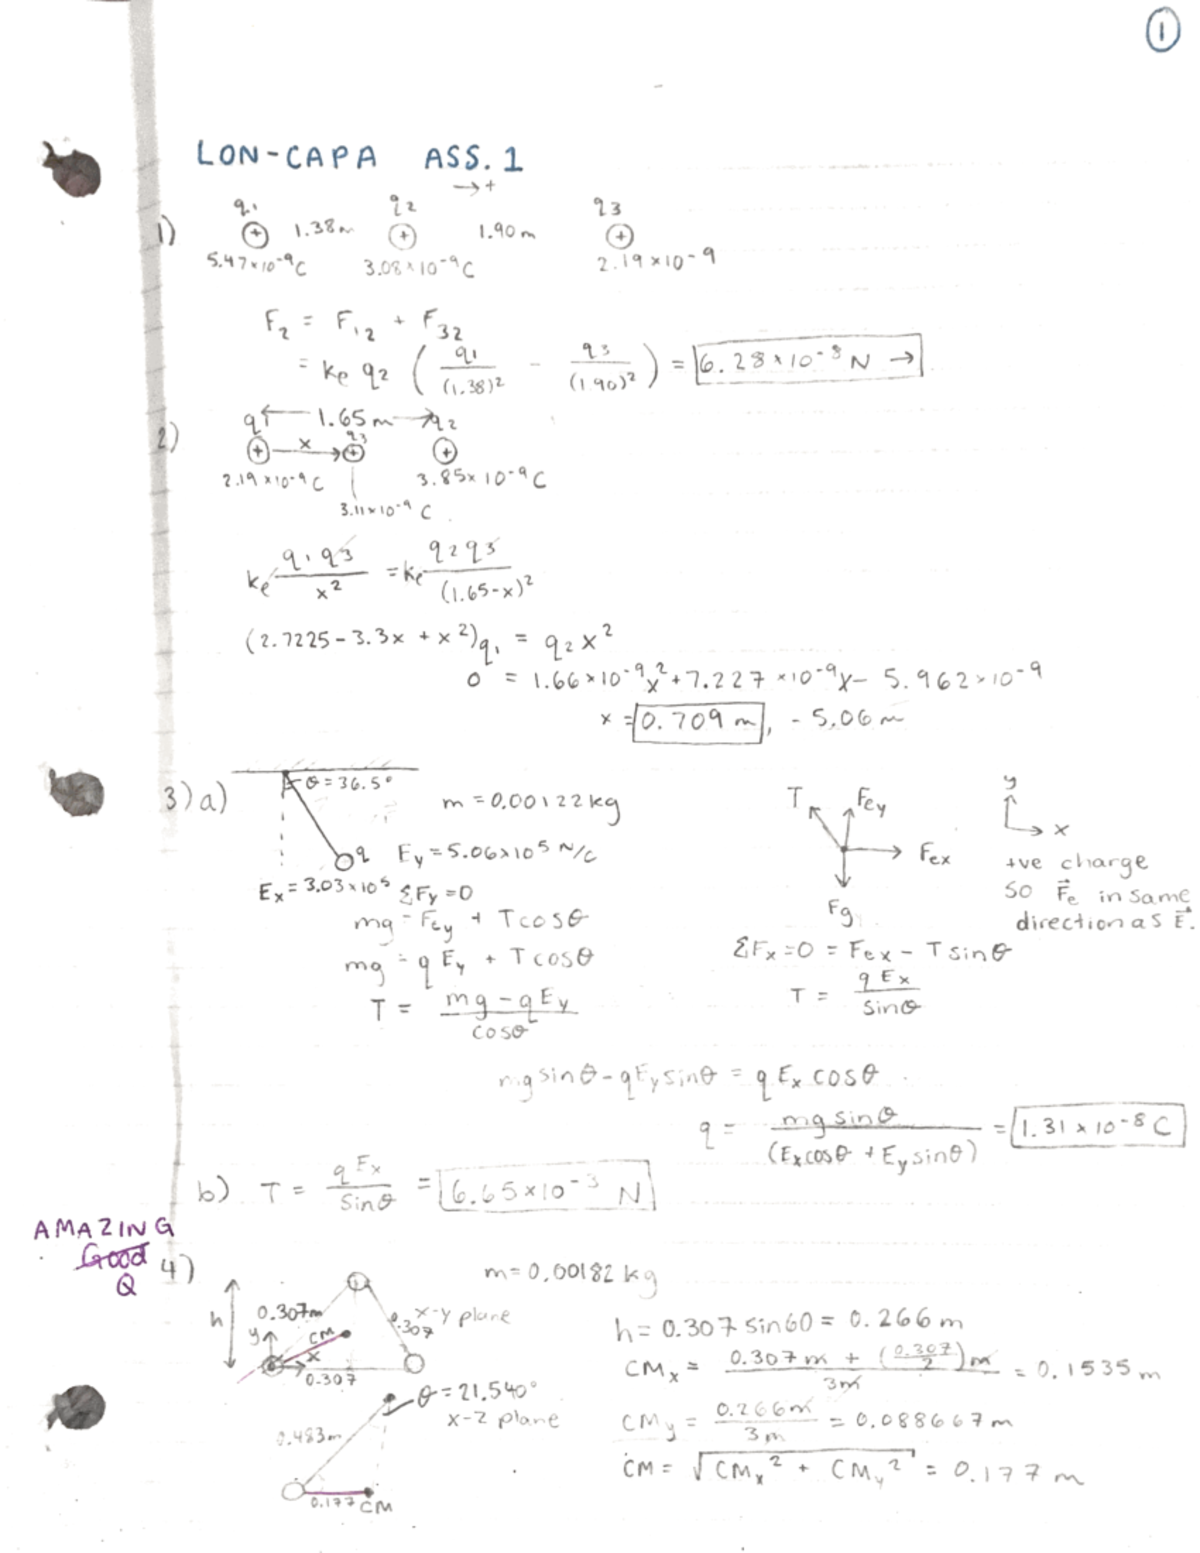 1
LON-CAPA ASS. 1
→+
1) q1 1.38m q2 1.90m q3
5.47×10⁻⁹C 3.08×10⁻⁹C 2.19×10⁻⁹
F₂ = F₁₂ + F₃₂
= ke q2 ( q1/(1.38)² - q3/(1.90)² ) = 6.28×10⁻⁸ N →
2) q1 ←1.65m→ q2
x q3
2.19×10⁻⁹C 3.85×10⁻⁹C
3.11×10⁻⁹ C
ke q1q3/x² = ke q2q3/(1.65-x)²
(2.7225-3.3x + x²)q₁ = q₂x²
0 = 1.66×10⁻⁹x² + 7.227×10⁻⁹x - 5.962×10⁻⁹
x = 0.709 m, -5.06m
3)a) θ=36.5°
m=0.00122kg
q Ey=5.06×10⁵ N/C
Ex=3.03×10⁵ ΣFy=0
T Fey
Fex
Fg
y
x
+ve charge
so F⃗e in same
direction as E⃗.
mg = Fey + Tcosθ
mg = qEy + Tcosθ
T = mg-qEy/cosθ
ΣFx=0 = Fex - Tsinθ
T = qEx/sinθ
mgsinθ-qEysinθ = qEx cosθ
q = mgsinθ/(Excosθ + Eysinθ) = 1.31×10⁻⁸C
b) T = qEx/sinθ = 6.65×10⁻³ N
AMAZING
Good
Q
4) m=0.00182 kg
h 0.307m 0.307 x-y plane
y CM
x
0.307
θ=21.540°
x-z plane
0.483m
0.177 CM
h=0.307sin60=0.266m
CMx = 0.307m + (0.307/2)m/3m = 0.1535m
CMy = 0.266m/3m = 0.088667m
CM = √CMx² + CMy² = 0.177m